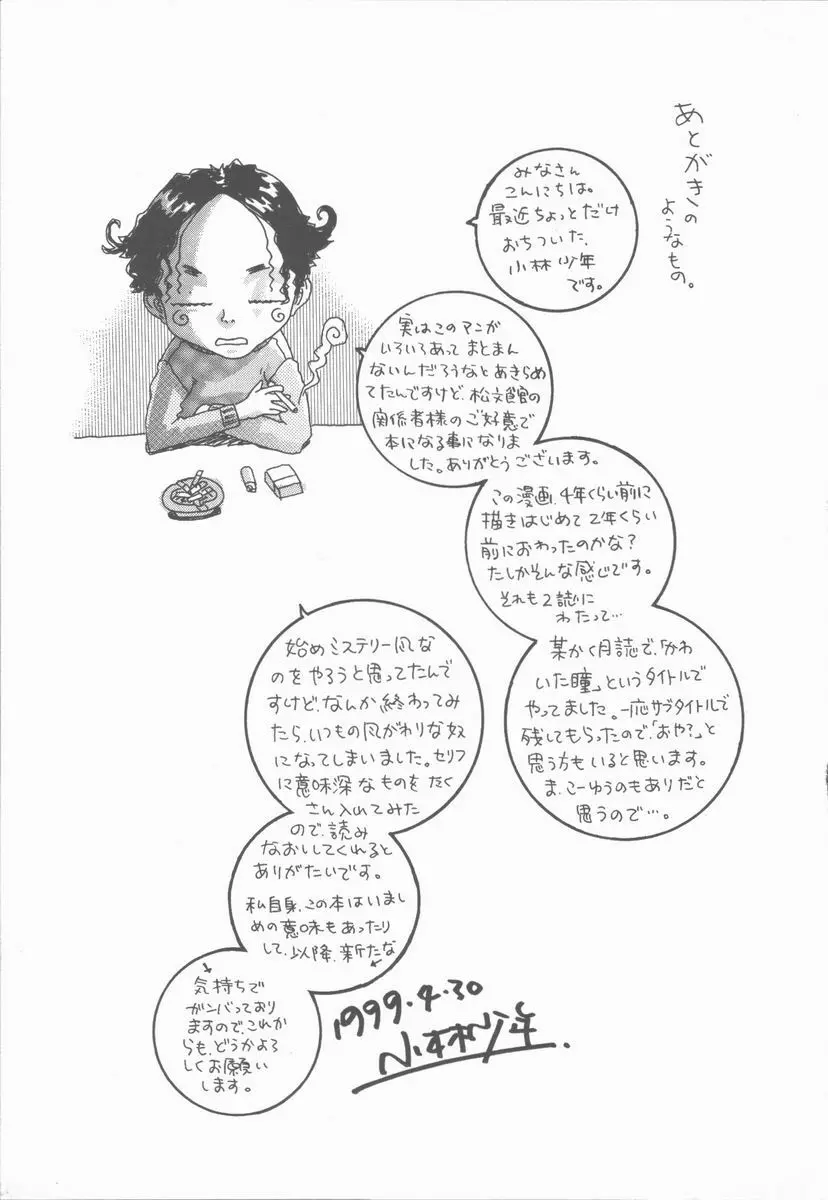 あとがきの
ようなもの。
みなさん
こんにちは。
最近ちょっとだけ
おちついた、
小林少年
です。
実はこのマンガ
いろいろあって まとまん
ないんだろうなと あきらめ
てたんですけど、松文館の
関係者様のご好意で
本になる事になりま
した。ありがとうございます。
この漫画、4年くらい前に
描きはじめて 2年くらい
前におわったのかな？
たしかそんな感じです。
それも2誌に
わたって…
某かく月誌で、「かわ
いた瞳」というタイトルで
やってました。一応サブタイトルで
残してもらったので、「おや？」と
思う方もいると思います。
ま、こーゆうのもありだと
思うので…。
始めミステリー風な
のをやろうと思ってたんで
すけど、なんか終わってみ
たら、いつもの風がわりな奴
になってしまいました。セリフ
に意味深なものを たく
さん入れてみた
ので、読み
なおしてくれると
ありがたいです。
私自身、この本はいまし
めの意味もあったり
して、以降、新たな
気持ちで
ガンバっており
ますので、これか
らも、どうかよろ
しくお願い
します。
1999.4.30
小林少年.